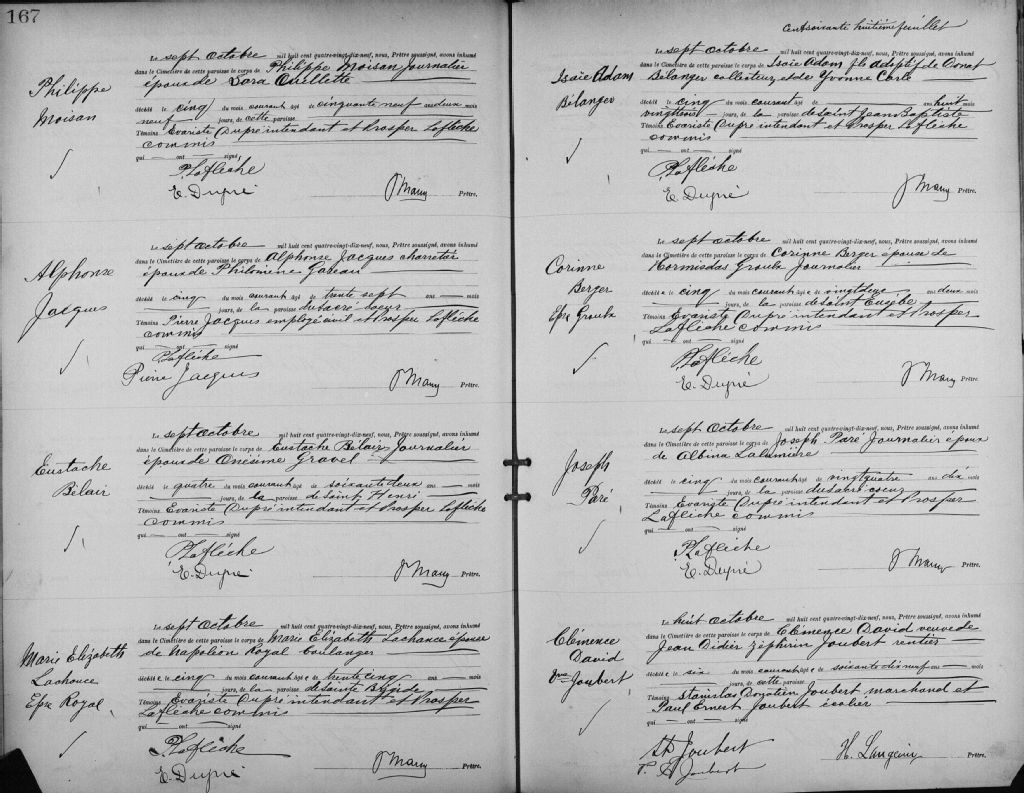 167
Philippe
Moisan
Le sept octobre mil huit cent quatre-vingt-dix-neuf, nous, Prêtre soussigné, avons inhumé
dans le Cimetière de cette paroisse le corps de Philippe Moisan journalier
époux de Dora Ouellette
décédé le cinq du mois courant âgé de cinquante neuf ans deux mois
neuf jours, de cette paroisse
Témoins Evariste Dupré intendant et Prosper Laflèche
commis
qui — ont — signé,
P. Laflèche
E. Dupré
Prêtre.
Alphonse
Jacques
Le sept octobre mil huit cent quatre-vingt-dix-neuf, nous, Prêtre soussigné, avons inhumé
dans le Cimetière de cette paroisse le corps de Alphonse Jacques charretier
époux de Philomène Gareau
décédé le cinq du mois courant âgé de trente sept ans — mois
jours, de la paroisse du Sacré Coeur
Témoins Pierre Jacques employé civil et Prosper Laflèche
commis
qui — ont — signé
P. Laflèche
Pierre Jacques
Prêtre.
Eustache
Bélair
Le sept octobre mil huit cent quatre-vingt-dix-neuf, nous, Prêtre soussigné, avons inhumé
dans le Cimetière de cette paroisse le corps de Eustache Bélair Journalier
époux de Onésime Gravel
décédé le quatre du mois courant âgé de soixante deux ans — mois
jours, de la paroisse de Saint Henri
Témoins Evariste Dupré intendant et Prosper Laflèche
commis
qui — ont — signé
P. Laflèche
E. Dupré
Prêtre.
Marie Elizabeth
Lachance
Epse Royal
Le sept octobre mil huit cent quatre-vingt-dix-neuf, nous, Prêtre soussigné, avons inhumé
dans le Cimetière de cette paroisse le corps de Marie Elizabeth Lachance épouse
de Napoléon Royal boulanger
décédée le cinq du mois courant âgée de trente cinq ans — mois
jours, de la paroisse de Sainte Brigide
Témoins Evariste Dupré intendant et Prosper
Laflèche commis
qui — ont — signé
P. Laflèche
E. Dupré
Prêtre.
Cent soixante huitième feuillet
Isaie Adam
Bélanger
Le sept octobre mil huit cent quatre-vingt-dix-neuf, nous, Prêtre soussigné, avons inhumé
dans le Cimetière de cette paroisse le corps de Isaie Adam fils adoptif de Donat
Bélanger collecteur et de Yvonne
décédé le cinq du mois courant âgé de — ans huit mois
jours, de la paroisse de Saint Jean Baptiste
Témoins Evariste Dupré intendant et Prosper Laflèche
commis
qui — ont — signé
P. Laflèche
E. Dupré
Prêtre.
Corinne
Berger
Epse Groulx
Le sept octobre mil huit cent quatre-vingt-dix-neuf, nous, Prêtre soussigné, avons inhumé
dans le Cimetière de cette paroisse le corps de Corinne Berger épouse de
Hormisdas Groulx Journalier
décédée le cinq du mois courant âgée de vingt deux ans deux mois
jours, de la paroisse de Saint Eusèbe
Témoins Evariste Dupré intendant et Prosper
Laflèche commis
qui — ont — signé
P. Laflèche
E. Dupré
Prêtre.
Joseph
Paré
Le sept octobre mil huit cent quatre-vingt-dix-neuf, nous, Prêtre soussigné, avons inhumé
dans le Cimetière de cette paroisse le corps de Joseph Paré Journalier époux
de Albina Lalumière
décédé le cinq du mois courant âgé de vingt quatre ans dix mois
jours, de la paroisse du Sacré Coeur
Témoins Evariste Dupré intendant et Prosper
Laflèche commis
qui — ont — signé
P. Laflèche
E. Dupré
Prêtre.
Clémence
David
Vve Joubert
Le huit octobre mil huit cent quatre-vingt-dix-neuf, nous, Prêtre soussigné, avons inhumé
dans le Cimetière de cette paroisse le corps de Clémence David veuve de
Jean Didier Zéphirin Joubert rentier
décédée le six du mois courant âgée de soixante dix neuf ans — mois
jours, de cette paroisse
Témoins Stanislas Donatien Joubert marchand et
Paul Ernest Joubert écolier
qui — ont — signé
St D Joubert
P. E Joubert
H. Langevin
Prêtre.